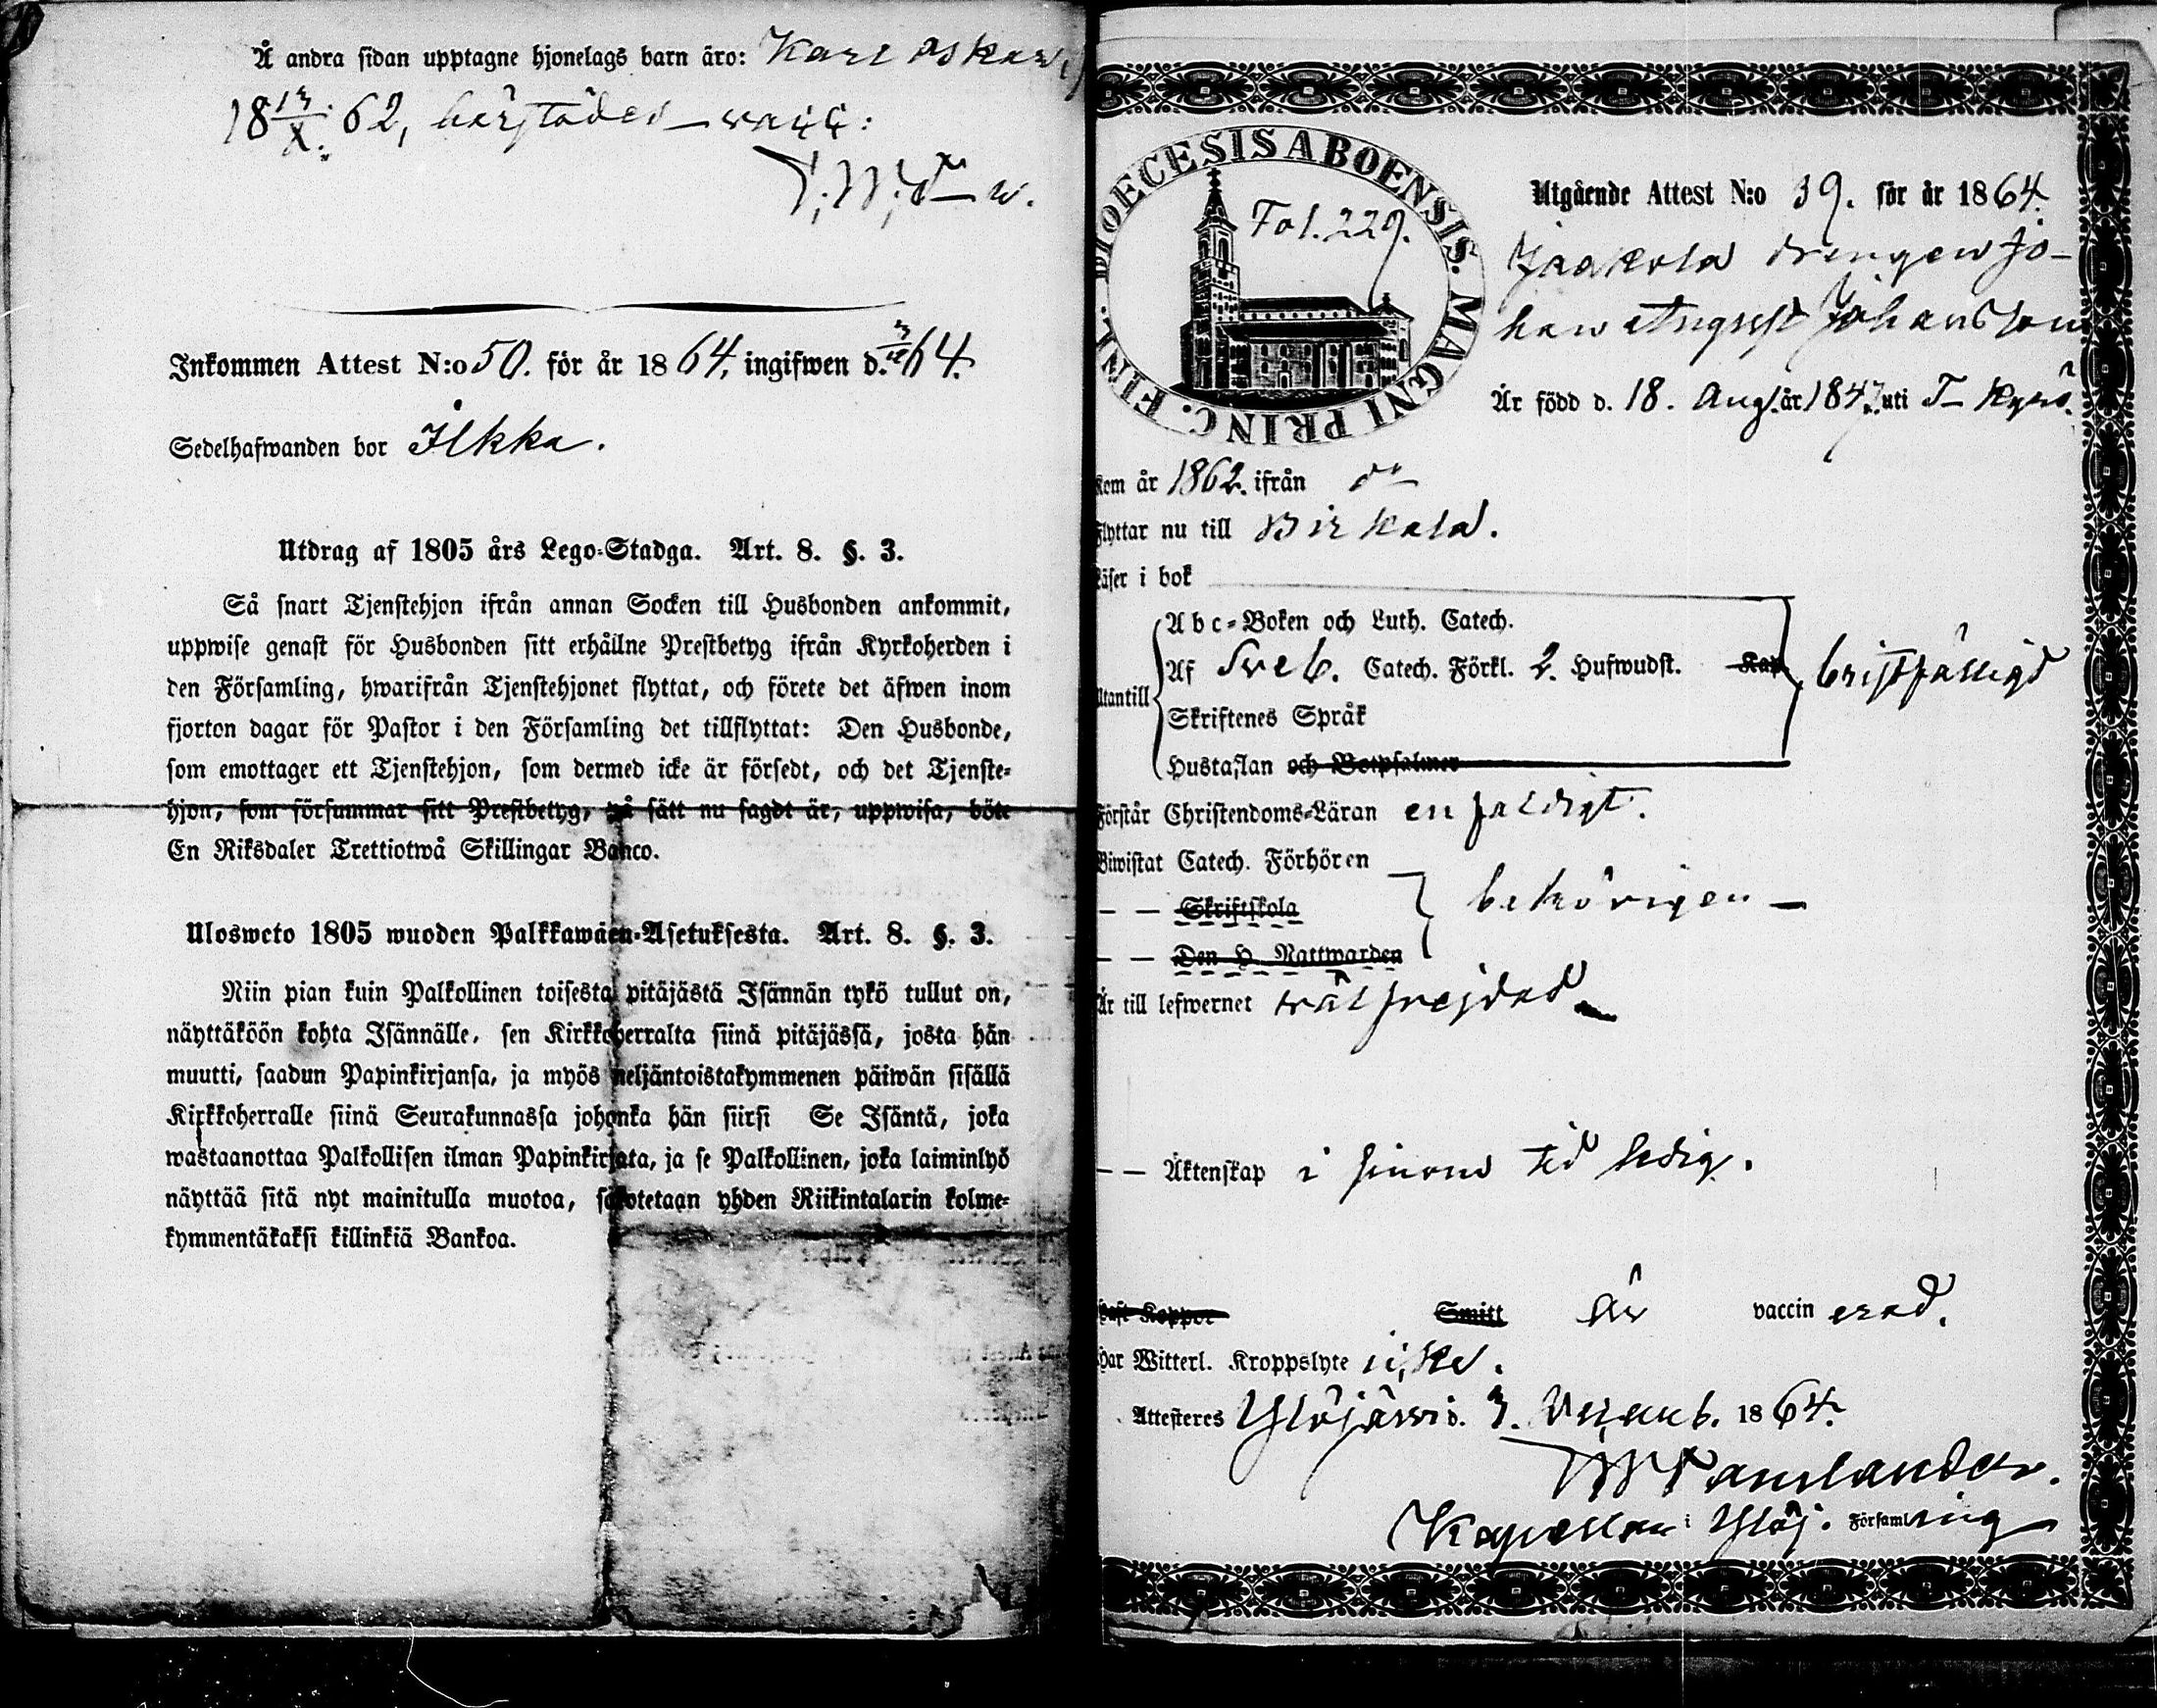 Å andra sidan upptagne hjonelags barn äro: Karl Oskar,
18 13/X. 62, härstädes
Inkommen Attest N:o 50. för år 1864, ingifwen d. 64.
Sedelhafwanden bor Ilkka.
Utdrag af 1805 års Lego-Stadga. Art. 8. §. 3.
Så snart Tjenstehjon ifrån annan Socken till Husbonden ankommit,
uppwise genast för Husbonden sitt erhållne Prestbetyg ifrån Kyrkoherden i
den Församling, hwarifrån Tjenstehjonet flyttat, och förete det äfwen inom
fjorton dagar för Pastor i den Församling det tillflyttat: Den Husbonde,
som emottager ett Tjenstehjon, som dermed icke är försedt, och det Tjenste-
hjon, som försummar sitt Prestbetyg, på sätt nu sagdt är, uppwisa, böte
En Riksdaler Trettiotwå Skillingar Banco.
Ulosweto 1805 wuoden Palkkawäen-Asetuksesta. Art. 8. §. 3.
Niin pian kuin Palkollinen toisesta pitäjästä Isännän tykö tullut on,
näyttäköön kohta Isännälle, sen Kirkkoherralta siinä pitäjässä, josta hän
muutti, saadun Papinkirjansa, ja myös neljäntoistakymmenen päiwän sisällä
Kirkkoherralle siinä Seurakunnassa johonka hän siirsi Se Isäntä, joka
wastaanottaa Palkollisen ilman Papinkirjata, ja se Palkollinen, joka laiminlyö
näyttää sitä nyt mainitulla muotoa, sakotetaan yhden Riikintalarin kolme-
kymmentäkaksi killinkiä Bankoa.
DIOECESIS ABOENSIS. MAGNI PRINC. FINL.
Fol. 229.
Utgående Attest N:o 39. för år 1864.
Jaakola drengen Jo-
han August Johansson
Är född d. 18. Aug. år 1847. uti T- Kyrö.
Kom år 1862. ifrån do
Flyttar nu till Birkala.
Läser i bok
Utantill
Abc-Boken och Luth. Catech.
Af Sveb. Catech. Förkl. 2. Hufwudst. Kap. bristfälligt
Skriftenes Språk
Hustaflan och Botpsalmer
Förstår Christendoms-Läran enfaldigt.
Biwistat Catech. Förhören
— — Skriftskola behörigen —
— — Den H. Nattwarden
Är till lefwernet välfrejdad
— — Äktenskap i sinom tid ledig.
Haft Koppor Smitt är vaccin erad.
Har Witterl. Kroppslyte icke.
Attesteras Ylöjärvi d. 3. 1864.
Kapellan i Ylöj. Församling